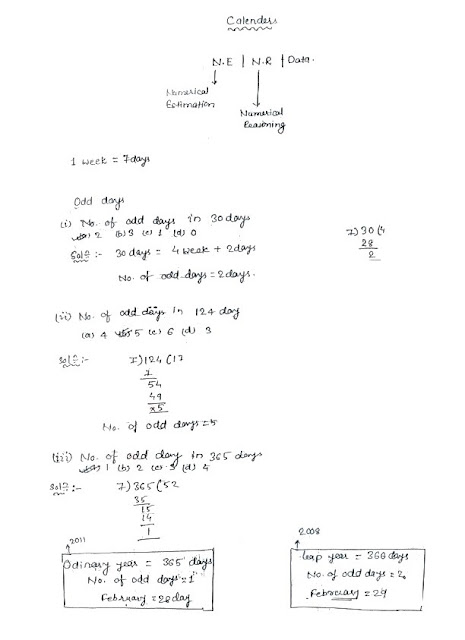 Calenders
N.E | N.R | Data.
Numerical
Estimation
Numerical
Reasoning
1 week = 7days
Odd days
(i) No. of odd days in 30 days
(a) 2 (b) 3 (c) 1 (d) 0
7)30(4
28
2
Solⁿ :- 30 days = 4 week + 2days
No. of odd days = 2days.
(ii) No. of odd days in 124 day
(a) 4 (b) 5 (c) 6 (d) 3
Solⁿ :- 7)124(17
7
54
49
x5
No. of odd days = 5
(iii) No. of odd day in 365 days
(a) 1 (b) 2 (c) 3 (d) 4
Solⁿ :- 7)365(52
35
15
14
1
2011
Odinary year = 365 days
No. of odd days = 1
February = 28 day
2008
Leap year = 366 days
No. of odd days = 2
February = 29